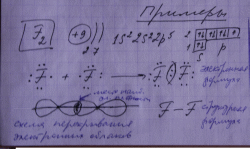 Примеры
F₂ (+9) )) 1S²2S²2p⁵ 2 ↑↓ ↑↓ ↑↓ ↑
2 7 1 ↑↓
S p
:F̈· + ·F̈: → :F̈(:)F̈: электронная
формула
место
F – F структурная
формула
схема перекрывания
электронных облаков